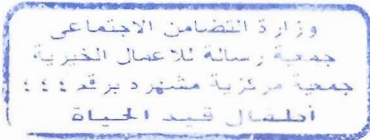 وزارة التضامن الاجتماعى
جمعية رسالة للاعمال الخيرية
جمعية مركزية مشهرة برقم ٤٤٤
أطفال قيد الحياة